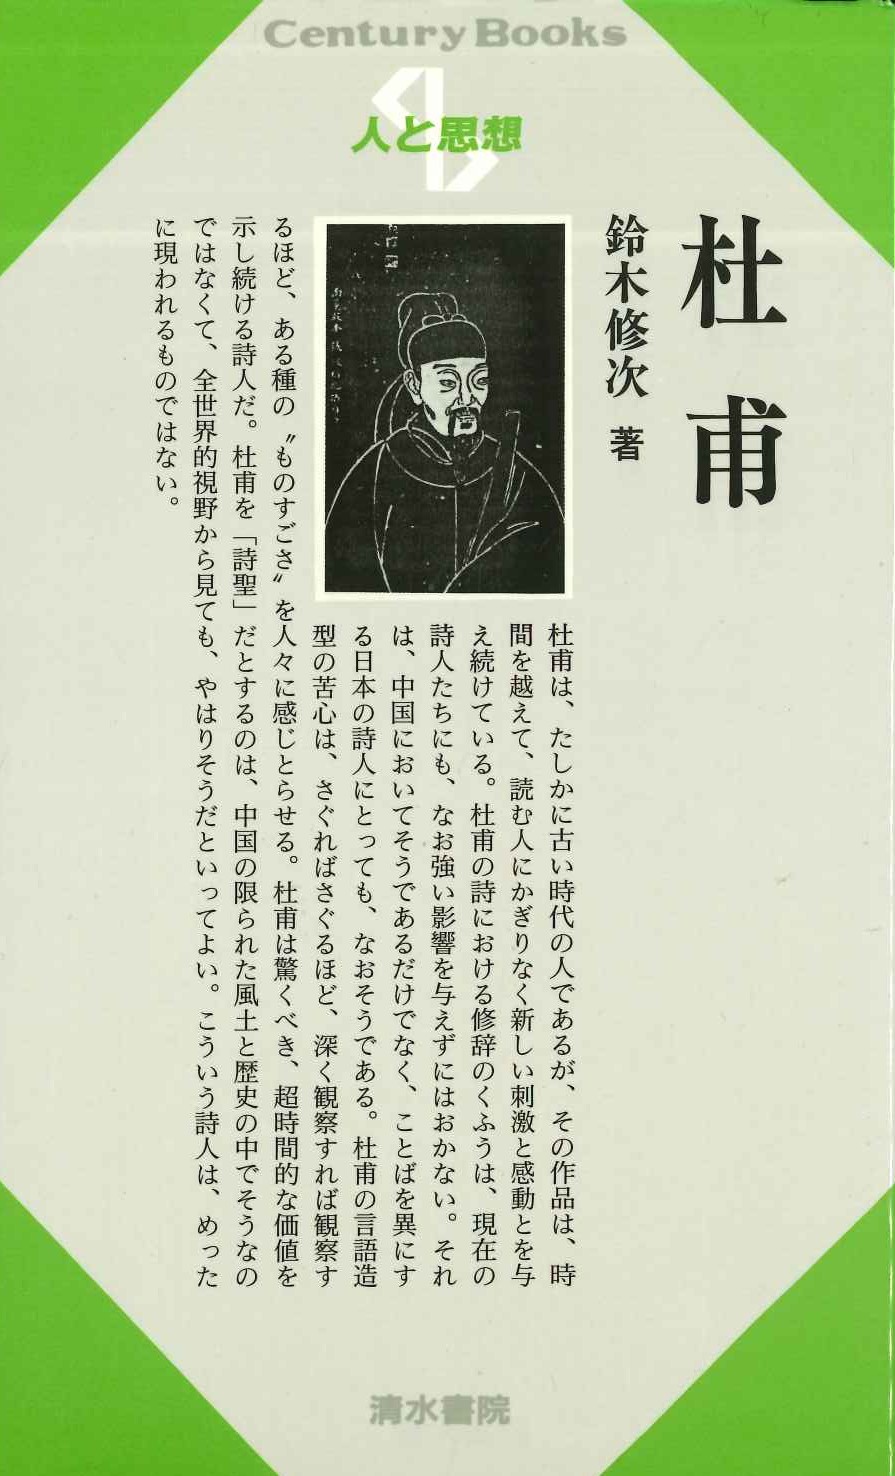 Century Books
人と思想
杜甫
鈴木修次 著
杜甫は、たしかに古い時代の人であるが、その作品は、時
間を越えて、読む人にかぎりなく新しい刺激と感動とを与
え続けている。杜甫の詩における修辞のくふうは、現在の
詩人たちにも、なお強い影響を与えずにはおかない。それ
は、中国においてそうであるだけでなく、ことばを異にす
る日本の詩人にとっても、なおそうである。杜甫の言語造
型の苦心は、さぐればさぐるほど、深く観察すれば観察す
るほど、ある種の〝ものすごさ〟を人々に感じとらせる。杜甫は驚くべき、超時間的な価値を
示し続ける詩人だ。杜甫を「詩聖」だとするのは、中国の限られた風土と歴史の中でそうなの
ではなくて、全世界的視野から見ても、やはりそうだといってよい。こういう詩人は、めった
に現われるものではない。
清水書院